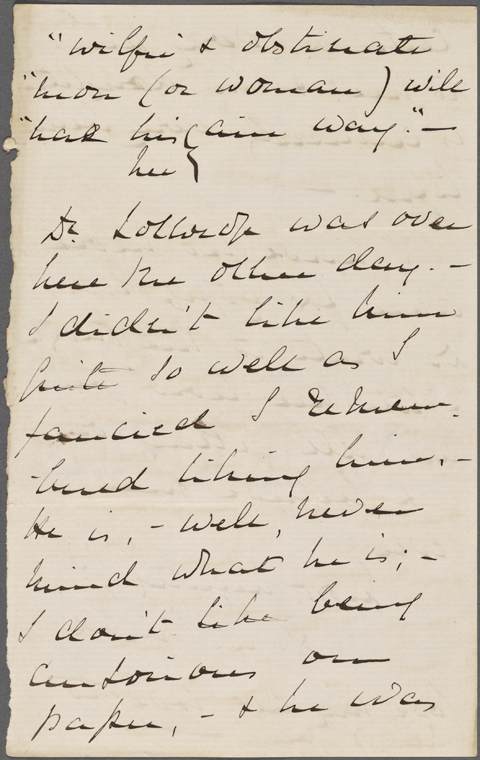 "wilfu' & obstinate
"mon (or woman) will
"hae his ain way." —
her }
Dr. Lothrop was over
here the other day. —
I didn't like him
quite so well as I
fancied I remem-
-bered liking him. —
He is, — well, never
mind what he is; —
I don't like being
censorious on
paper, — & he was